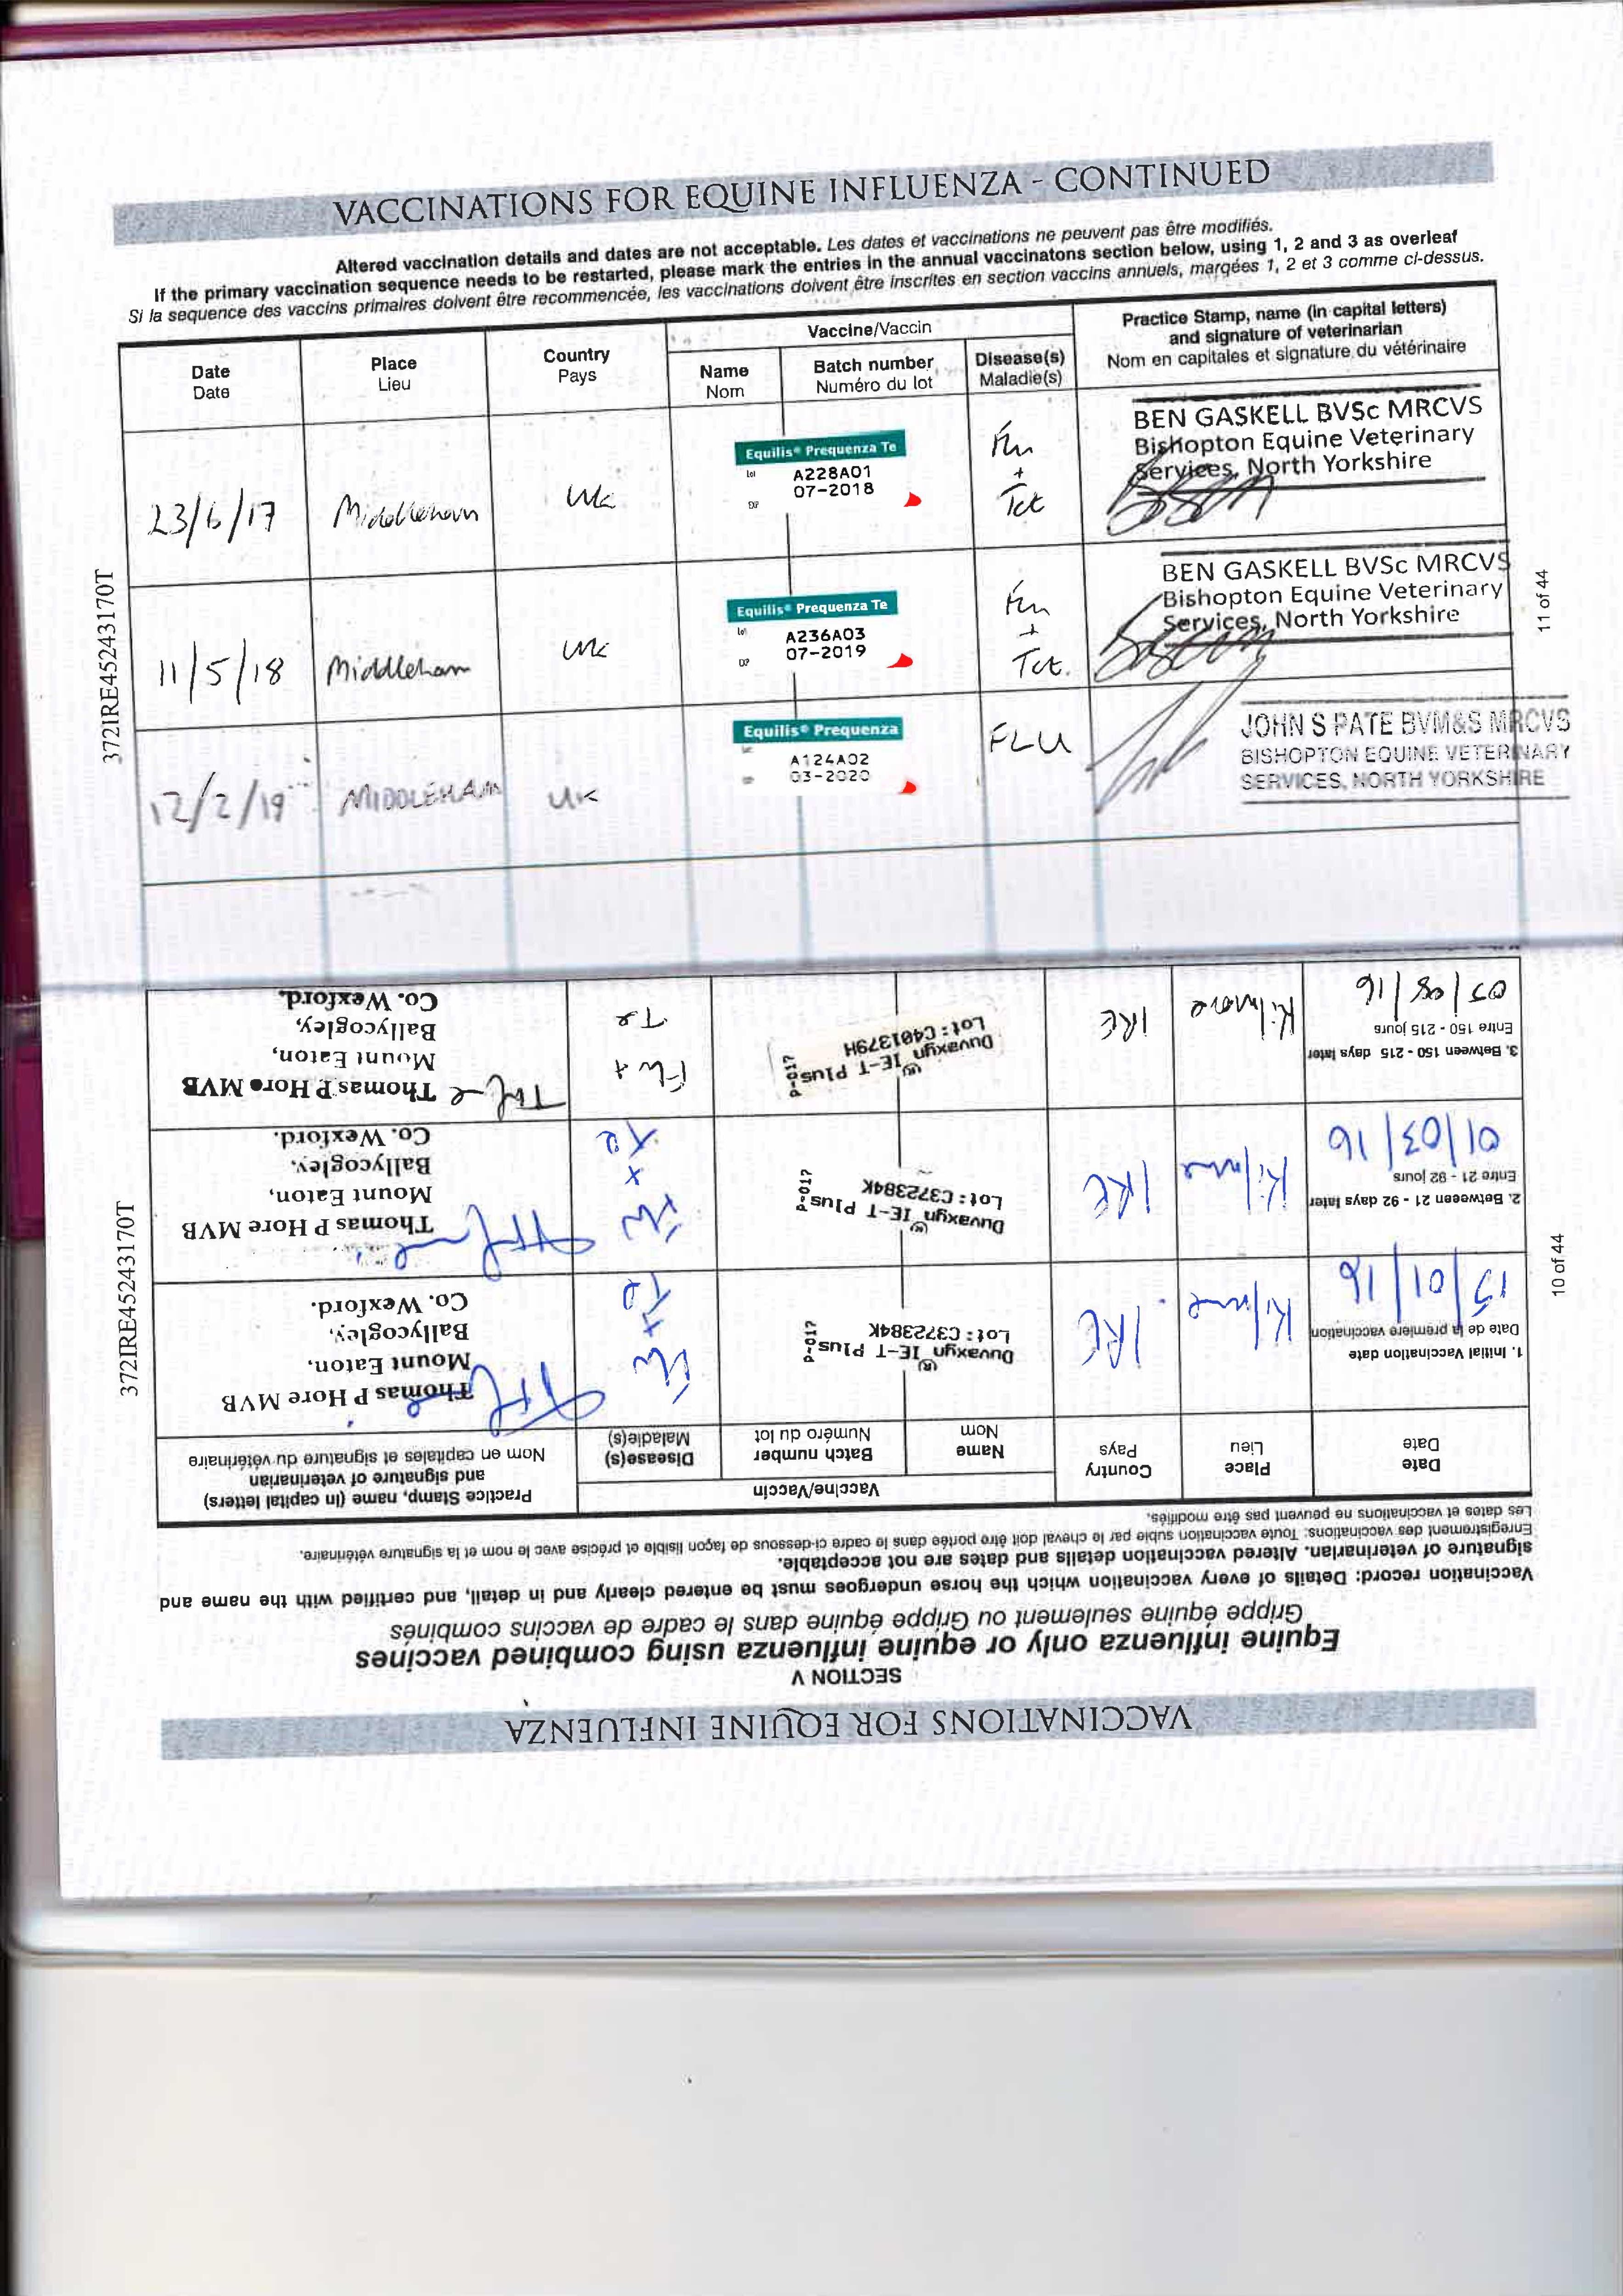 VACCINATIONS FOR EQUINE INFLUENZA - CONTINUED
Altered vaccination details and dates are not acceptable. Les dates et vaccinations ne peuvent pas être modifiés.
If the primary vaccination sequence needs to be restarted, please mark the entries in the annual vaccinatons section below, using 1, 2 and 3 as overleaf
Si la sequence des vaccins primaires doivent être recommencée, les vaccinations doivent être inscrites en section vaccins annuels, marqées 1, 2 et 3 comme ci-dessus.
Date
Date
Place
Lieu
Country
Pays
Vaccine/Vaccin
Name
Nom
Batch number
Numéro du lot
Disease(s)
Maladie(s)
Practice Stamp, name (in capital letters)
and signature of veterinarian
Nom en capitales et signature du vétérinaire
23/6/17
Middleham
UK
Equilis® Prequenza Te
lot A228A01
07-2018
Flu
+
Tet
BEN GASKELL BVSc MRCVS
Bishopton Equine Veterinary
Services, North Yorkshire
11/5/18
Middleham
UK
Equilis® Prequenza Te
lot A236A03
07-2019
Flu
+
Tet.
BEN GASKELL BVSc MRCVS
Bishopton Equine Veterinary
Services, North Yorkshire
12/2/19
MIDDLEHAM
UK
Equilis® Prequenza
A124A02
03-2020
FLU
JOHN S PATE BVM&S MRCVS
BISHOPTON EQUINE VETERINARY
SERVICES, NORTH YORKSHIRE
372IRE45243170T
11 of 44
VACCINATIONS FOR EQUINE INFLUENZA
SECTION V
Equine influenza only or equine influenza using combined vaccines
Grippe équine seulement ou Grippe équine dans le cadre de vaccins combinés
Vaccination record: Details of every vaccination which the horse undergoes must be entered clearly and in detail, and certified with the name and
signature of veterinarian. Altered vaccination details and dates are not acceptable.
Enregistrement des vaccinations: Toute vaccination subie par le cheval doit être portée dans le cadre ci-dessous de façon lisible et précise avec le nom et la signature vétérinaire.
Les dates et vaccinations ne peuvent pas être modifiés.
Date
Date
Place
Lieu
Country
Pays
Vaccine/Vaccin
Name
Nom
Batch number
Numéro du lot
Disease(s)
Maladie(s)
Practice Stamp, name (in capital letters)
and signature of veterinarian
Nom en capitales et signature du vétérinaire
1. Initial Vaccination date
Date de la première vaccination
15/01/16
Kilmore
IRE
Duvaxyn® IE-T Plus
Lot: C372384K
P-017
Flu
+
Te
Thomas P Hore MVB
Mount Eaton,
Ballycogley,
Co. Wexford.
2. Between 21 - 92 days later
Entre 21 - 92 jours
01/03/16
Kilmore
IRE
Duvaxyn® IE-T Plus
Lot: C372384K
P-017
Flu
+
Te
Thomas P Hore MVB
Mount Eaton,
Ballycogley,
Co. Wexford.
3. Between 150 - 215 days later
Entre 150 - 215 jours
05/08/16
Kilmore
IRE
Duvaxyn® IE-T Plus
Lot: C401379H
P-017
Flu +
Te
Thomas P Hore MVB
Mount Eaton,
Ballycogley,
Co. Wexford.
372IRE45243170T
10 of 44